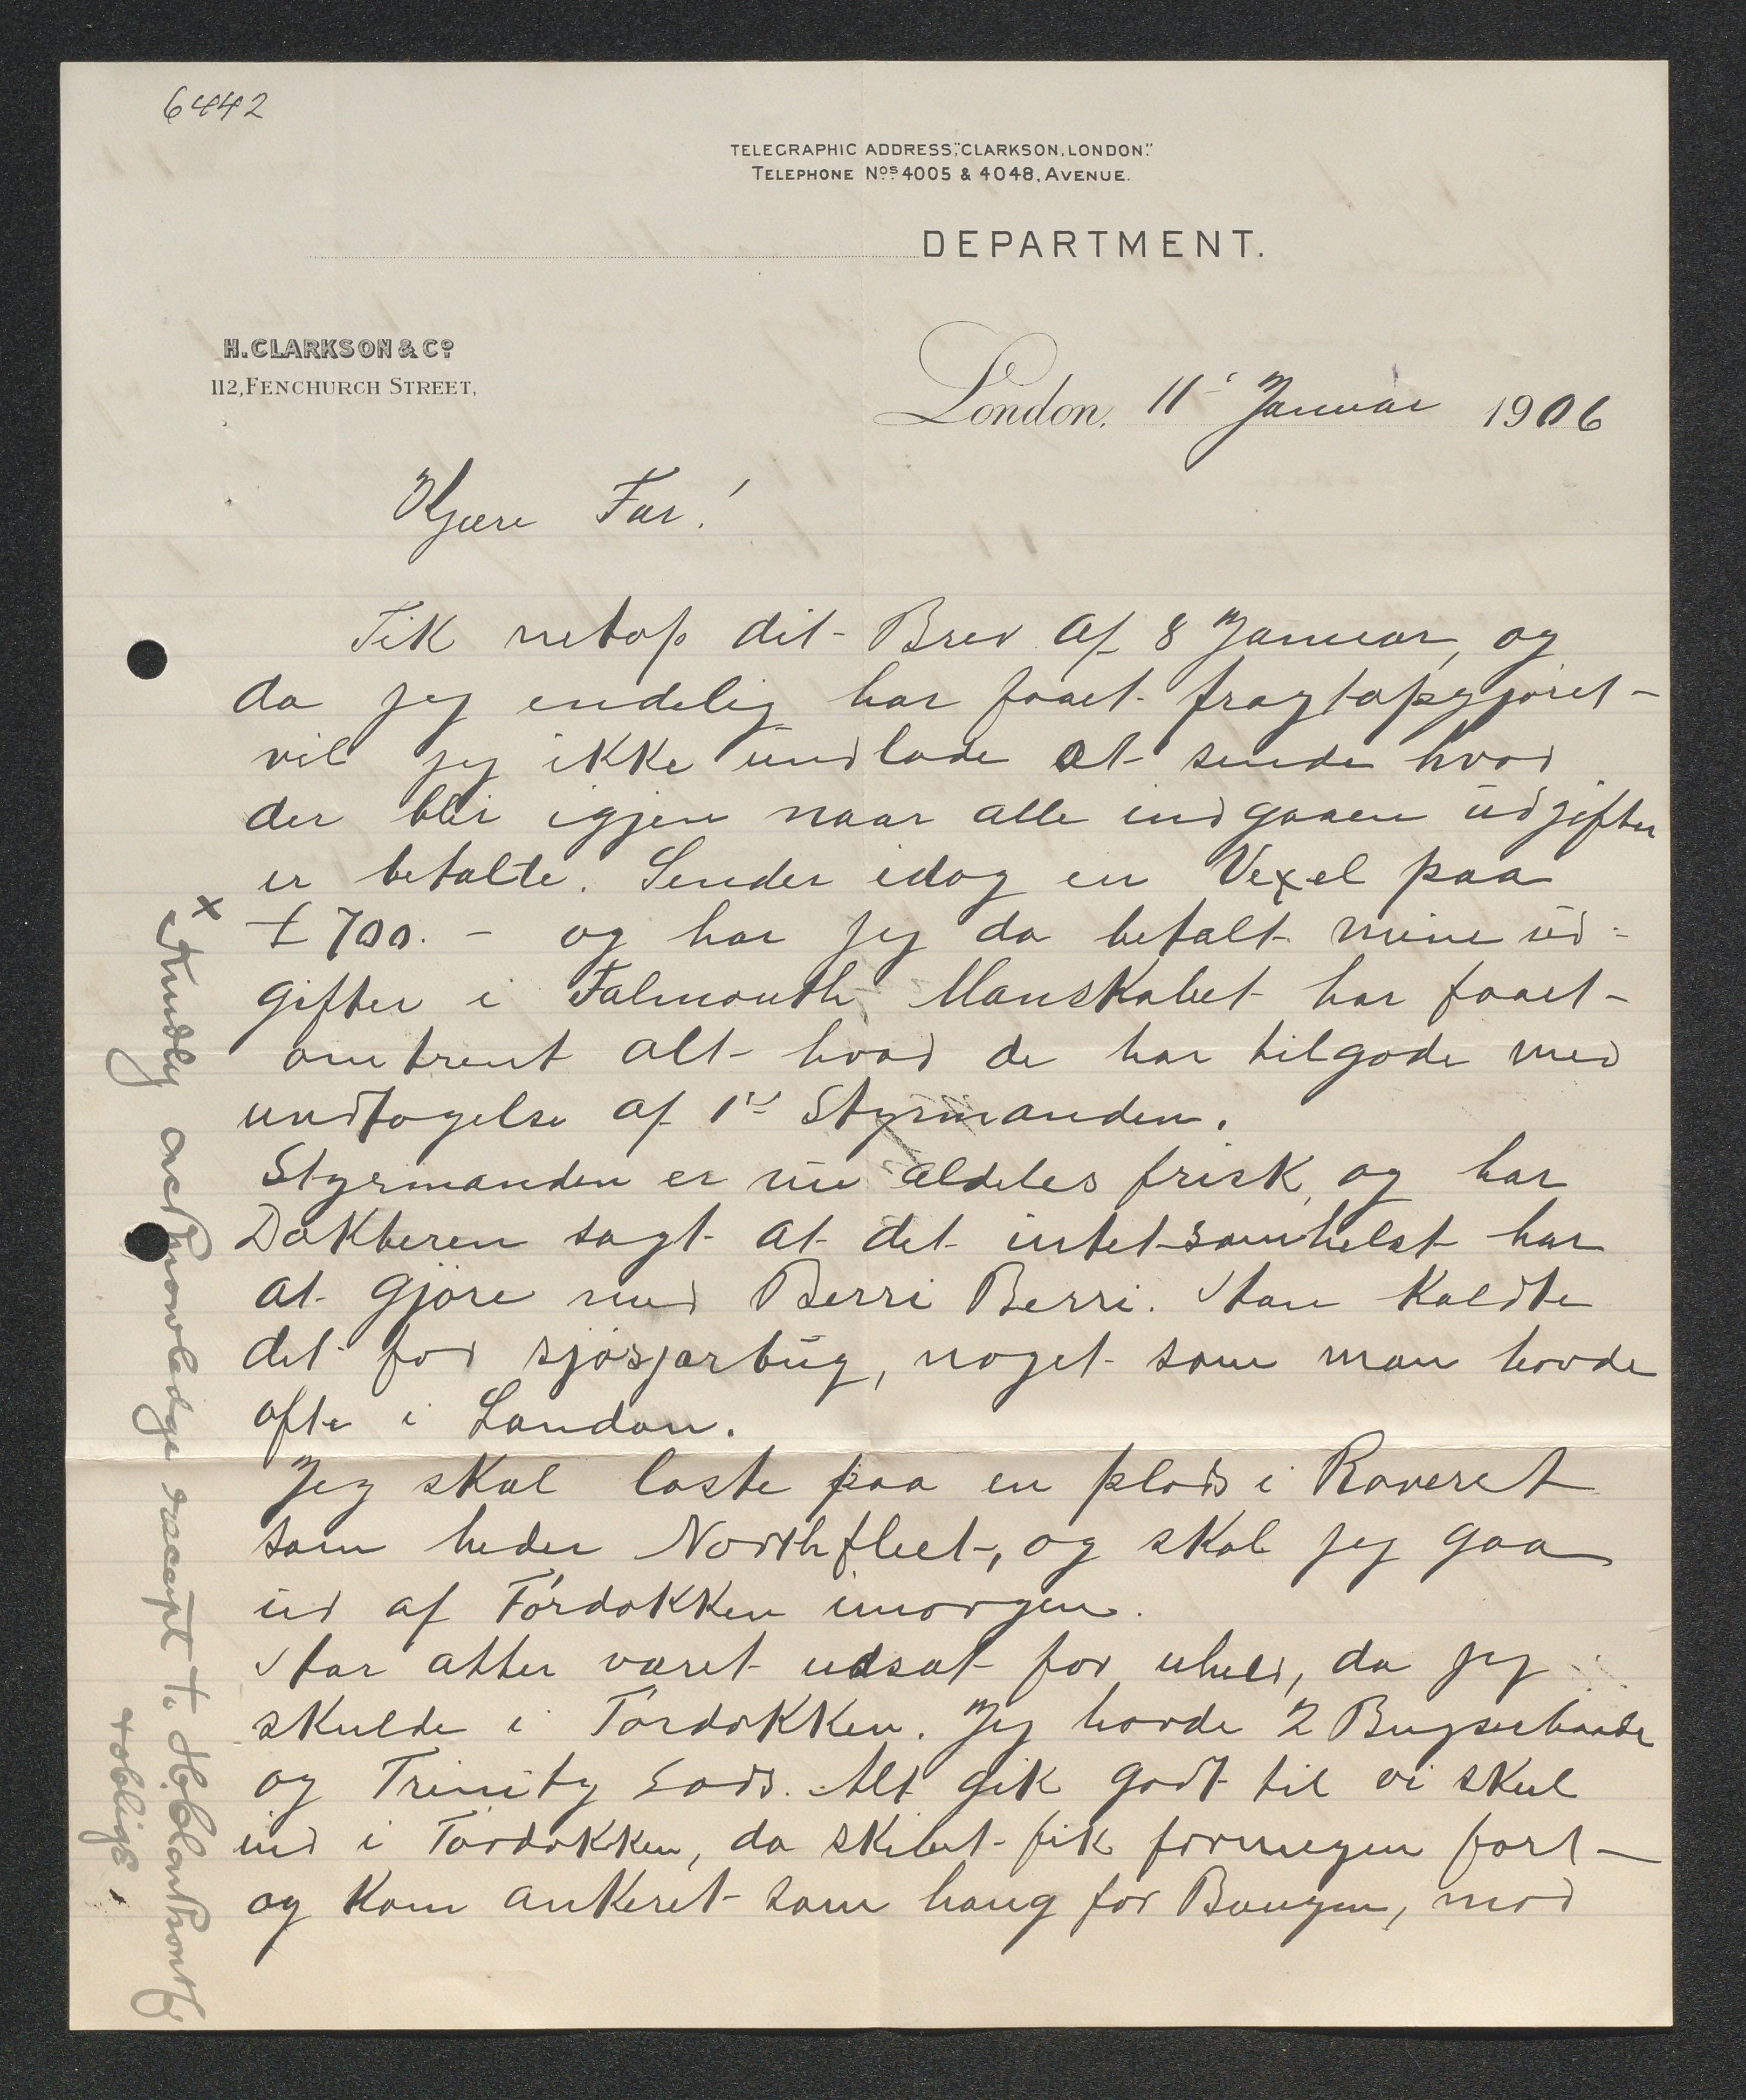 6442
TELEGRAPHIC ADDRESS, "CLARKSON, LONDON."
TELEPHONE Nos 4005 & 4048, AVENUE.
DEPARTMENT.
H. CLARKSON & Co
112, FENCHURCH STREET,
London, 11' Januar 1906
Kjære Far!
Fik netop dit Brev af 8 Januar, og
da jeg endelig har faaet fragtopgjøret
vil jeg ikke undlade at sende hvad
der blir igjen naar alle indgaaen udgifter
er betalte. Sender idag en Vexel paa
x £ 700.- og har jeg da betalt mine ud-
gifter i Falmouth. Manskabet har faaet
omtrent alt hvad de har tilgode med
undtagelse af 1ste Styrmanden.
Styrmanden er nu aldeles frisk, og har
Doktteren sagt at det intetsomhelst har
at gjøre med Berri Berri. Han kaldte
det for , noget som man havde
ofte i London.
Jeg skal laste paa en plads i Raveret
som heder Northfleet, og skal jeg gaa
ud af Tørdokken imorgen.
Har atter været udsat for uheld, da jeg
skulde i Tørdokken. Jeg havde 2 Bugserbaade
og Trinity Lods. Alt gik godt til vi skul
ind i Tørdokken, da skibet fik formegen fart
og kom ankeret som hang for Bougen, mod
x Kindly acknowledge receipt to H. Clarkson &
& oblige.